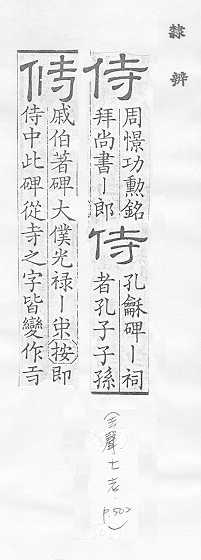 隸辨
侍 周憬功勲銘
拜尚書丨郎
侍 孔龢碑丨祠
者孔子子孫
侍 戚伯著碑大僕光禄丨中按即
侍中此碑從寺之字皆變作㝵
P.502